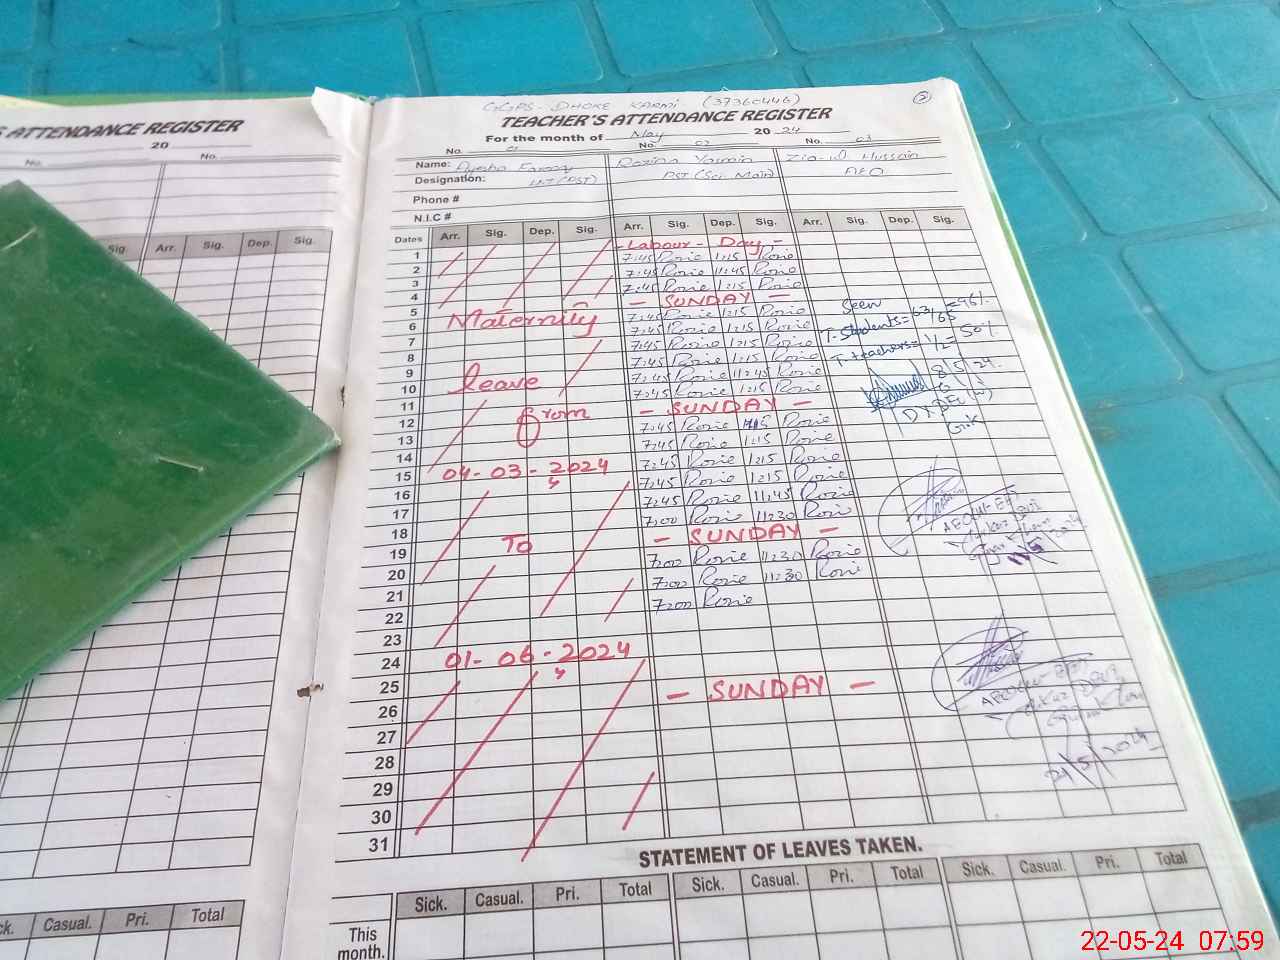 S ATTENDANCE REGISTER
20
No.
No.
Sig. Arr. Sig. Dep. Sig.
ck. Casual. Pri. Total
GGPS - DHOKE KARMI (37360446)
2
TEACHER'S ATTENDANCE REGISTER
For the month of May 2024
No. 01 No. 02 No. 03
Name: Ayesha Farooq Rozina Yasmin Zia-ul Hussain
Designation: PST (Sci. Main) AEO
Phone #
N.I.C #
Dates Arr. Sig. Dep. Sig. Arr. Sig. Dep. Sig. Arr. Sig. Dep. Sig.
1 - Labour - Day -
2 7:45 Rozie 1:15 Rozie
3 7:45 Rozie 11:45 Rozie
4 7:45 Rozie 1:15 Rozie
5 - SUNDAY - Seen
6 Maternity 7:45 Rozie 1:15 Rozie T. Students = 63/65 = 96%
7 7:45 Rozie 1:15 Rozie
8 7:45 Rozie 1:15 Rozie T. teachers = 1/2 = 50%
9 leave 7:45 Rozie 1:15 Rozie 8/5/24
10 7:45 Rozie 11:45 Rozie
11 7:45 Rozie 1:15 Rozie DY DEO (W)
12 from - SUNDAY - G.K
13 7:45 Rozie 1:15 Rozie
14 7:45 Rozie 1:15 Rozie
15 04-03-2024 7:45 Rozie 1:15 Rozie
16 7:45 Rozie 1:15 Rozie
17 7:45 Rozie 11:45 Rozie
18 To 7:00 Rozie 11:30 Rozie
19 - SUNDAY -
20 7:00 Rozie 11:30 Rozie
21 7:00 Rozie 11:30 Rozie
22 7:00 Rozie
23
24 01-06-2024
25
26 - SUNDAY -
27
28 21/5/2024
29
30
31
STATEMENT OF LEAVES TAKEN.
Sick. Casual. Pri. Total Sick. Casual. Pri. Total Sick. Casual. Pri. Total
This
month.
22-05-24 07:59